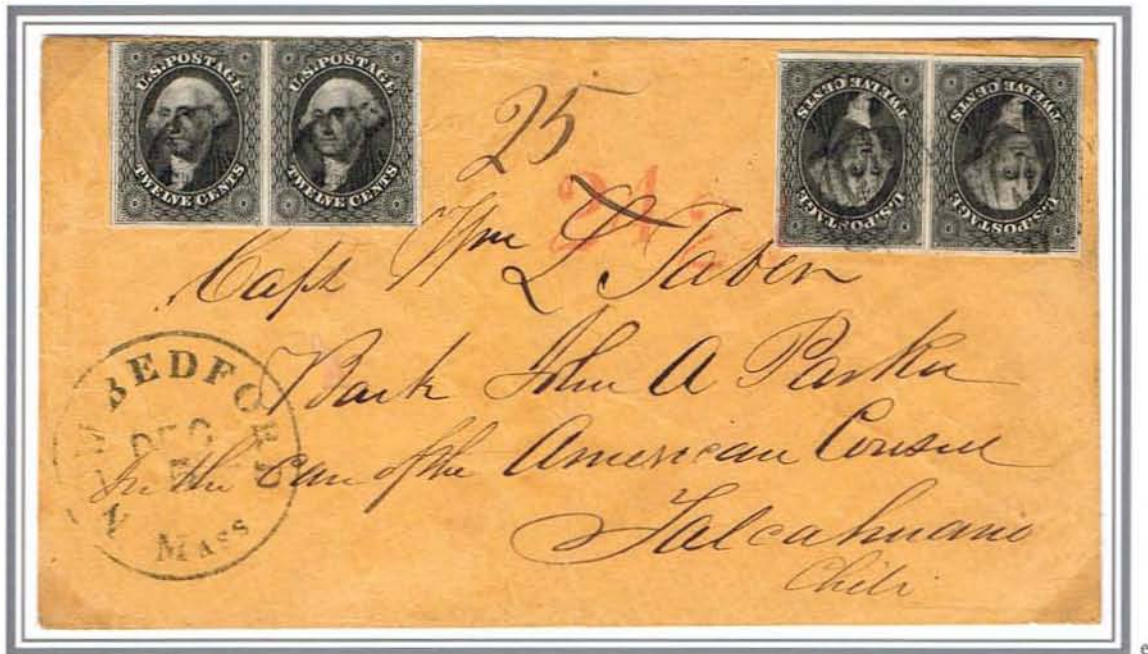 U.S. POSTAGE
TWELVE CENTS
U.S. POSTAGE
TWELVE CENTS
U.S. POSTAGE
TWELVE CENTS
U.S. POSTAGE
TWELVE CENTS
25
Capt Wm L Taber
Bark John A Parker
In the Care of the American Consul
Talcahuano
Chili
NEW BEDFORD
DEC
MASS